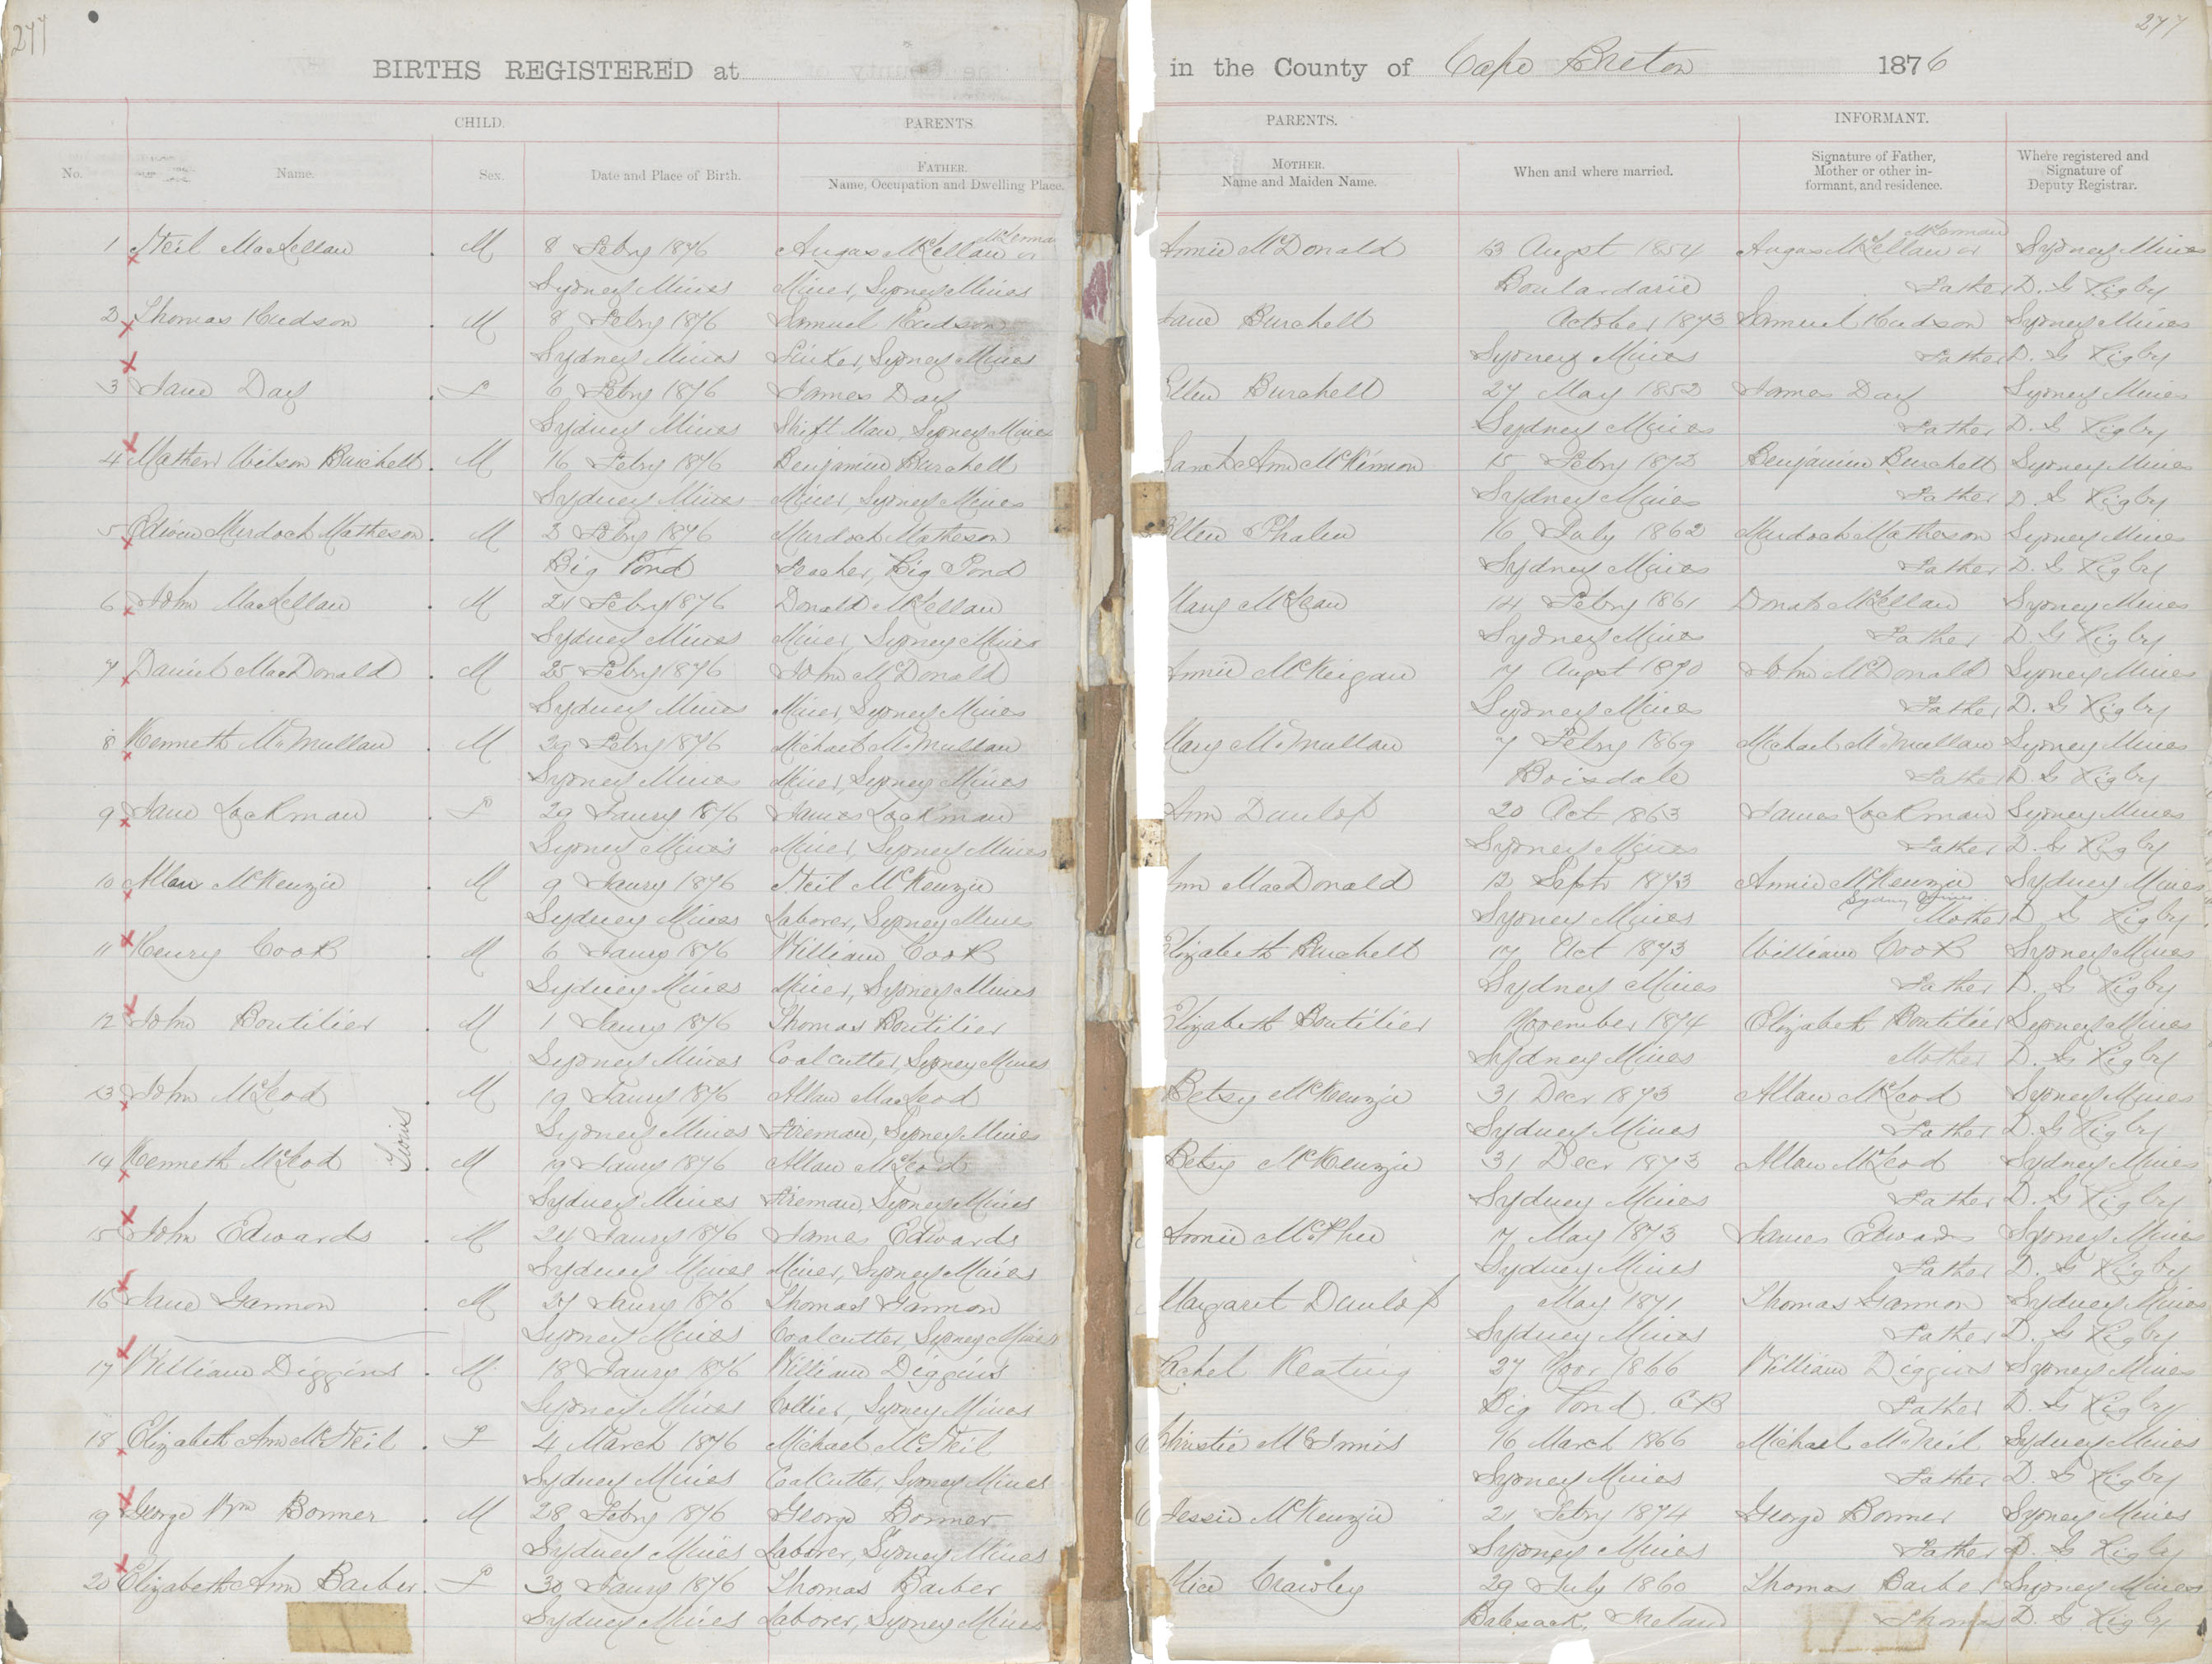 277
277
BIRTHS REGISTERED at
in the County of Cape Breton 1876
CHILD.
PARENTS.
PARENTS.
INFORMANT.
No.
Name.
Sex.
Date and Place of Birth.
FATHER.
Name, Occupation and Dwelling Place.
MOTHER.
Name and Maiden Name.
When and where married.
Signature of Father,
Mother or other in-
formant, and residence.
Where registered and
Signature of
Deputy Registrar.
McKennan McKennan
1 Neil MacLellan M 8 Febry 1876 Angus McLellan or Annie McDonald 13 Augst 1854 Angus McLellan or Sydney Mines
Sydney Mines Miner, Sydney Mines Boulardarie Father D. G Rigby
2 Thomas Hudson M 8 Febry 1876 Samuel Hudson Jane Burchell October 1873 Samuel Hudson Sydney Mines
Sydney Mines Sinker, Sydney Mines Sydney Mines Father D. G Rigby
3 Jane Day F 6 Febry 1876 James Day Ellen Burchell 27 May 1852 James Day Sydney Mines
Sydney Mines Shift Man, Sydney Mines Sydney Mines Father D. G Rigby
4 Mathew Wilson Burchell M 16 Febry 1876 Benjamin Burchell Sarah Ann McKinnon 15 Febry 1872 Benjamin Burchell Sydney Mines
Sydney Mines Miner, Sydney Mines Sydney Mines Father D. G Rigby
5 Edwin Murdoch Matheson M 3 Febry 1876 Murdoch Matheson Ellen Phalen 16 July 1862 Murdoch Matheson Sydney Mines
Big Pond Teacher, Big Pond Sydney Mines Father D. G Rigby
6 John MacLellan M 21 Febry 1876 Donald McLellan Mary McLean 14 Febry 1861 Donald McLellan Sydney Mines
Sydney Mines Miner, Sydney Mines Sydney Mines Father D. G Rigby
7 Daniel MacDonald M 25 Febry 1876 John McDonald Annie McKeigan 17 Augst 1870 John McDonald Sydney Mines
Sydney Mines Miner, Sydney Mines Sydney Mines Father D. G Rigby
8 Kenneth McMullan M 29 Febry 1876 Michael McMullan Mary McMullan 7 Febry 1869 Michael McMullan Sydney Mines
Sydney Mines Miner, Sydney Mines Boisdale Father D. G Rigby
9 Jane Lockman F 29 Jaury 1876 James Lockman Ann Dunlop 20 Oct 1863 James Lockman Sydney Mines
Sydney Mines Miner, Sydney Mines Sydney Mines Father D. G Rigby
10 Allan McKenzie M 9 Jaury 1876 Neil McKenzie Ann MacDonald 12 Septr 1873 Annie McKenzie Sydney Mines
Sydney Mines
Sydney Mines Laborer, Sydney Mines Sydney Mines Mother D. G Rigby
11 Henry Cook M 6 Jaury 1876 William Cook Elizabeth Burchell 17 Oct 1873 William Cook Sydney Mines
Sydney Mines Miner, Sydney Mines Sydney Mines Father D. G Rigby
12 John Boutilier M 1 Jaury 1876 Thomas Boutilier Elizabeth Boutilier November 1874 Elizabeth Boutilier Sydney Mines
Sydney Mines Coalcutter, Sydney Mines Sydney Mines Mother D. G Rigby
13 John McLeod M 19 Jaury 1876 Allan MacLeod Betsy McKenzie 31 Decr 1873 Allan McLeod Sydney Mines
Twins
Sydney Mines Fireman, Sydney Mines Sydney Mines Father D. G Rigby
14 Kenneth McLeod M 19 Jaury 1876 Allan McLeod Betsy McKenzie 31 Decr 1873 Allan McLeod Sydney Mines
Sydney Mines Fireman, Sydney Mines Sydney Mines Father D. G Rigby
15 John Edwards M 24 Jaury 1876 James Edwards Annie McPhee 17 May 1873 James Edwards Sydney Mines
Sydney Mines Miner, Sydney Mines Sydney Mines Father D. G Rigby
16 Jane Gannon M 27 Jaury 1876 Thomas Gannon Margaret Dunlop May 1871 Thomas Gannon Sydney Mines
Sydney Mines Coalcutter, Sydney Mines Sydney Mines Father D. G Rigby
17 William Diggins M 18 Jaury 1876 William Diggins Rachel Keating 27 Novr 1866 William Diggins Sydney Mines
Sydney Mines Collier, Sydney Mines Big Pond. CB Father D. G Rigby
18 Elizabeth Ann McNeil F 4 March 1876 Michael McNeil Christie McInnis 16 March 1866 Michael McNeil Sydney Mines
Sydney Mines Coalcutter, Sydney Mines Sydney Mines Father D. G Rigby
19 George Wm Bonner M 28 Febry 1876 George Bonner Jessie McKenzie 21 Febry 1874 George Bonner Sydney Mines
Sydney Mines Laborer, Sydney Mines Sydney Mines Father D. G Rigby
20 Elizabeth Ann Barber F 30 Jaury 1876 Thomas Barber Alice Crawley 29 July 1860 Thomas Barber Sydney Mines
Sydney Mines Laborer, Sydney Mines Ireland Thomas D. G Rigby